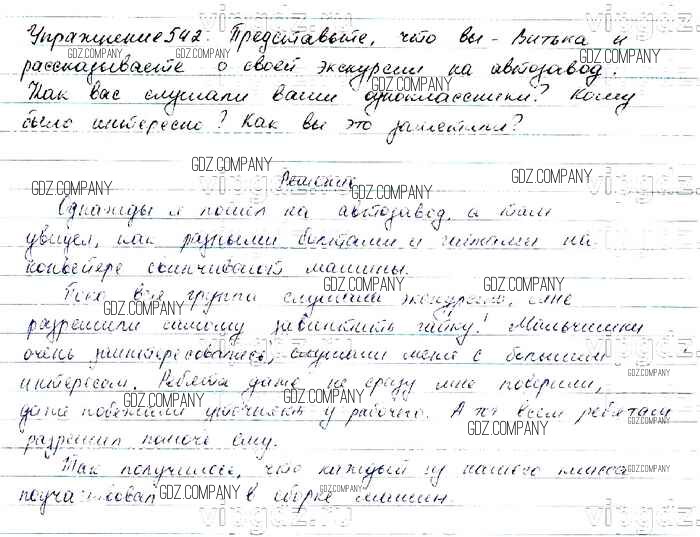 Упражнение 542. Представьте, что вы - Витька и
рассказываете о своей экскурсии на автозавод.
Как вас слушали ваши одноклассники? Кому
было интересно? Как вы это заметили?
Решение
Однажды я пошел на автозавод, и там
увидел, как разными болтами и гайками на
конвейере свинчивают машины.
Пока вся группа слушала экскурсию, мне
разрешили самому завинтить гайку! Мальчишки
очень заинтересовались, слушали меня с большим
интересом. Ребята даже не сразу мне поверили,
даже побежали уточнять у рабочего. А он всем ребятам
разрешил помочь ему.
Так получилось, что каждый из нашего класса
поучаствовал в сборке машин.
GDZ.COMPANY